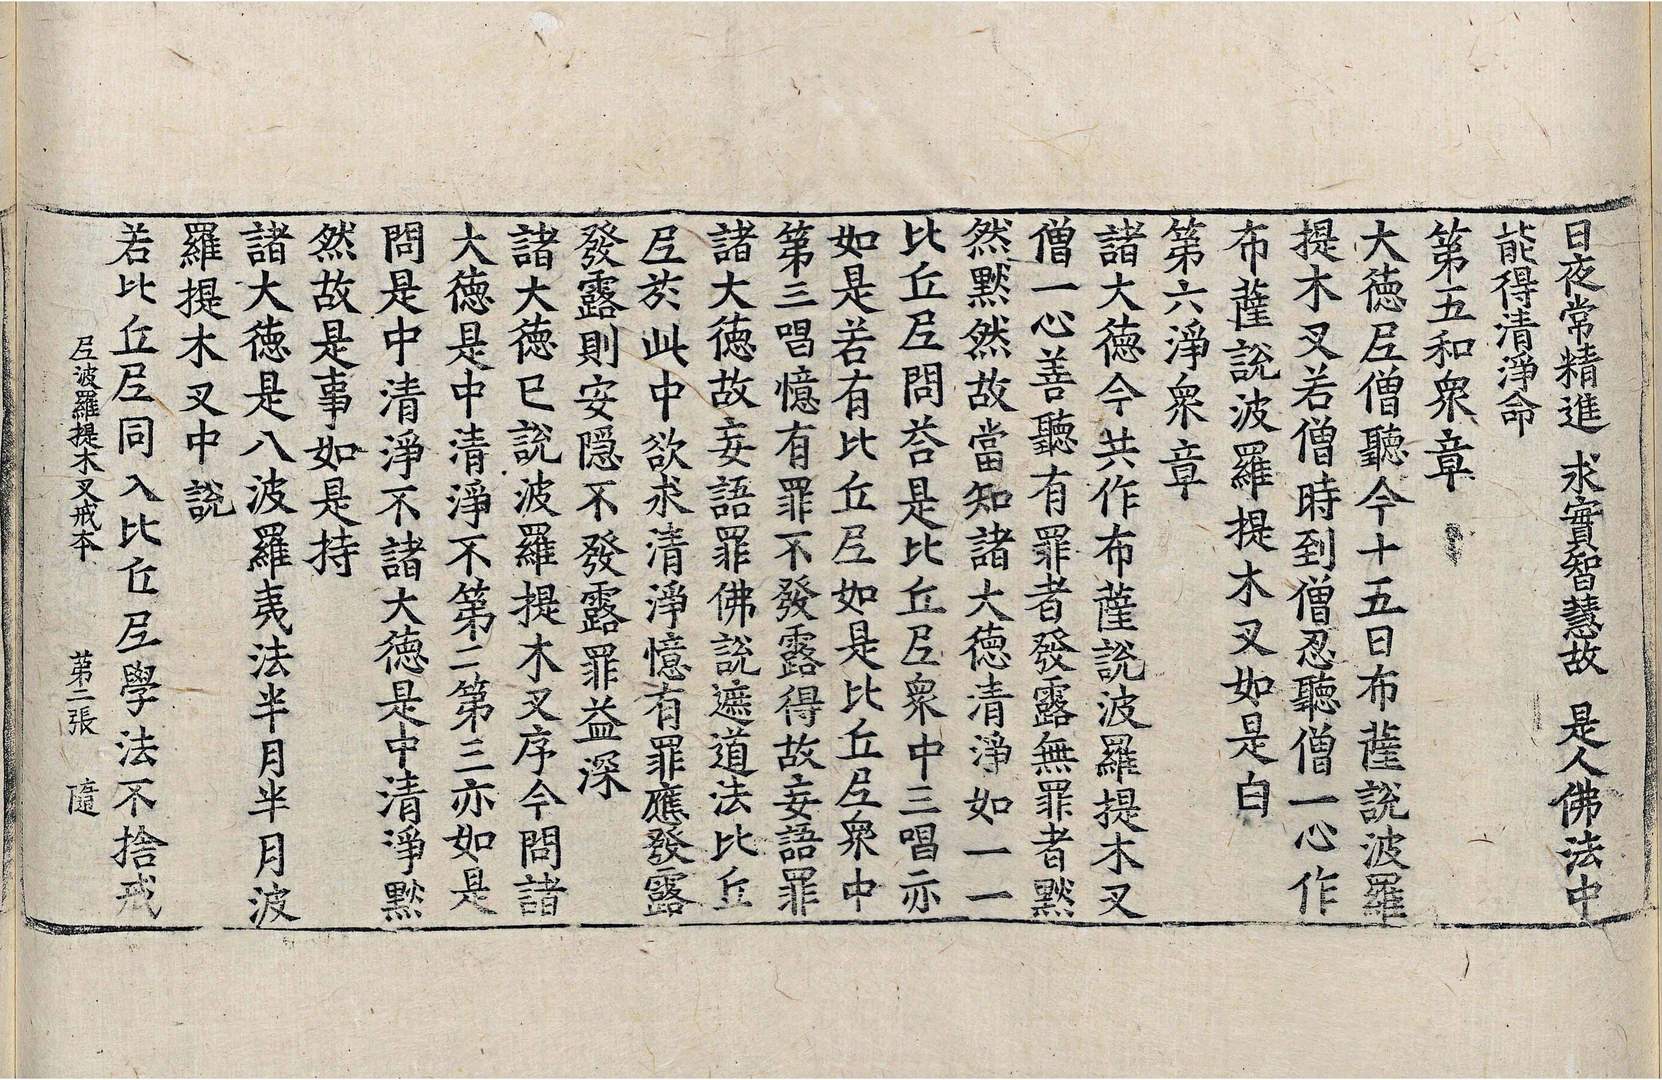 日夜常精進　求實智慧故　是人佛法中
能得清淨命
第五和衆章
大德尼僧聽今十五日布薩說波羅
提木叉若僧時到僧忍聽僧一心作
布薩說波羅提木叉如是白
第六淨衆章
諸大德今共作布薩說波羅提木叉
僧一心善聽有罪者發露無罪者黙
然黙然故當知諸大德清淨如一一
比丘尼問荅是比丘尼衆中三唱亦
如是若有比丘尼如是比丘尼衆中
第三唱憶有罪不發露得故妄語罪
諸大德故妄語罪佛說遮道法比丘
尼於此中欲求清淨憶有罪應發露
發露則安隱不發露罪益深
諸大德已說波羅提木叉序今問諸
大德是中清淨不第二第三亦如是
問是中清淨不諸大德是中清淨黙
然故是事如是持
諸大德是八波羅夷法半月半月波
羅提木叉中說
若比丘尼同入比丘尼學法不捨戒
尼波羅提木叉戒本　第二張　隨